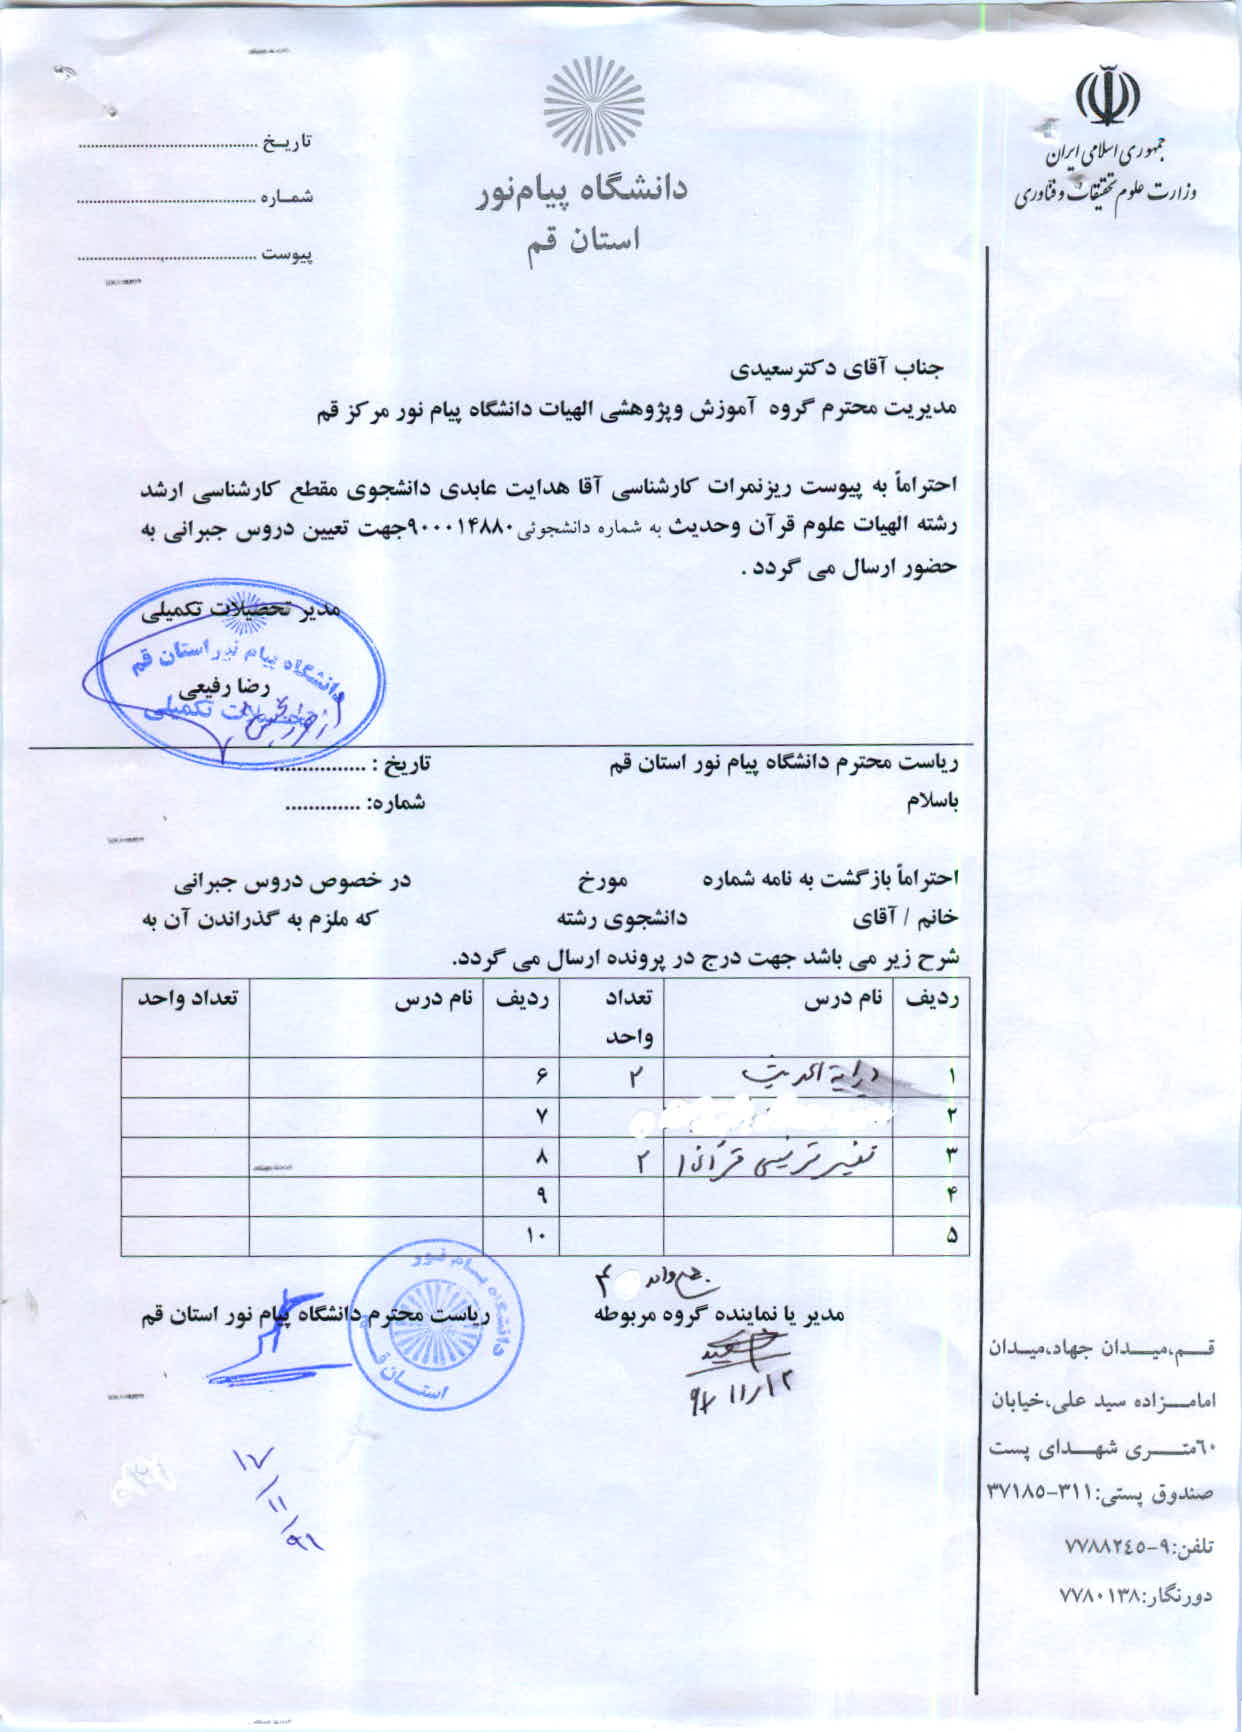 جمهوری اسلامی ایران
وزارت علوم تحقیقات و فناوری
دانشگاه پیام‌نور
استان قم
تاریـخ ........................................
شمـاره ........................................
پیوست ........................................
جناب آقای دکترسعیدی
مدیریت محترم گروه آموزش وپژوهشی الهیات دانشگاه پیام نور مرکز قم
احتراماً به پیوست ریزنمرات کارشناسی آقا هدایت عابدی دانشجوی مقطع کارشناسی ارشد
رشته الهیات علوم قرآن وحدیث به شماره دانشجوئی ۹۰۰۰۱۴۸۸۰جهت تعیین دروس جبرانی به
حضور ارسال می گردد .
مدیر تحصیلات تکمیلی
دانشگاه پیام نور استان قم
رضا رفیعی
تحصیلات تکمیلی
ریاست محترم دانشگاه پیام نور استان قم تاریخ : ................
باسلام شماره: .............
احتراماً بازگشت به نامه شماره مورخ در خصوص دروس جبرانی
خانم / آقای دانشجوی رشته که ملزم به گذراندن آن به
شرح زیر می باشد جهت درج در پرونده ارسال می گردد.
ردیف نام درس تعداد واحد ردیف نام درس تعداد واحد
۱ درایة الحدیث ۲ ۶
۲ ۷
۳ تفسیر ترتیبی قرآن ۱ ۲ ۸
۴ ۹
۵ ۱۰
جمع واحد ۴
مدیر یا نماینده گروه مربوطه ریاست محترم دانشگاه پیام نور استان قم
دانشگاه پیام نور
استان قم
۹۲/۱۱/۱۲
قـم،میـدان جهاد،میـدان
امامـزاده سید علی،خیابان
۶۰متـری شهـدای پست
صندوق پستی:۳۱۱-۳۷۱۸۵
تلفن:۹-۷۷۸۸۲٤٥
دورنگار:۷۷۸۰۱۳۸